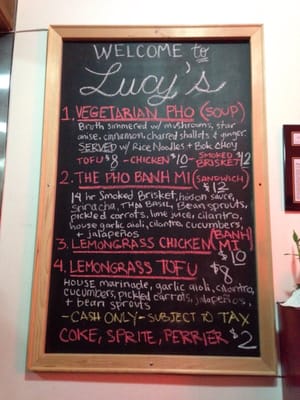 WELCOME to
Lucy's
1. VEGETARIAN PHO (SOUP)
Broth simmered w/ mushrooms, star
anise, cinnamon, charred shallots & ginger.
SERVED w/ Rice Noodles + Bok Choy
TOFU $8 - CHICKEN $10 - SMOKED BRISKET $12
2. THE PHO BANH MI (SANDWICH)
$12
14 hr Smoked Brisket, hoison sauce,
sriracha, Thai Basil, Bean sprouts,
pickled carrots, lime juice, cilantro,
house garlic aioli, cilantro, cucumbers,
+ jalapeños
3. LEMONGRASS CHICKEN (BANH) MI
$10
4. LEMONGRASS TOFU
$8
House marinade, garlic aioli, cilantro,
cucumbers, pickled carrots, jalapeños,
+ bean sprouts
-CASH ONLY - SUBJECT TO TAX
COKE, SPRITE, PERRIER $2